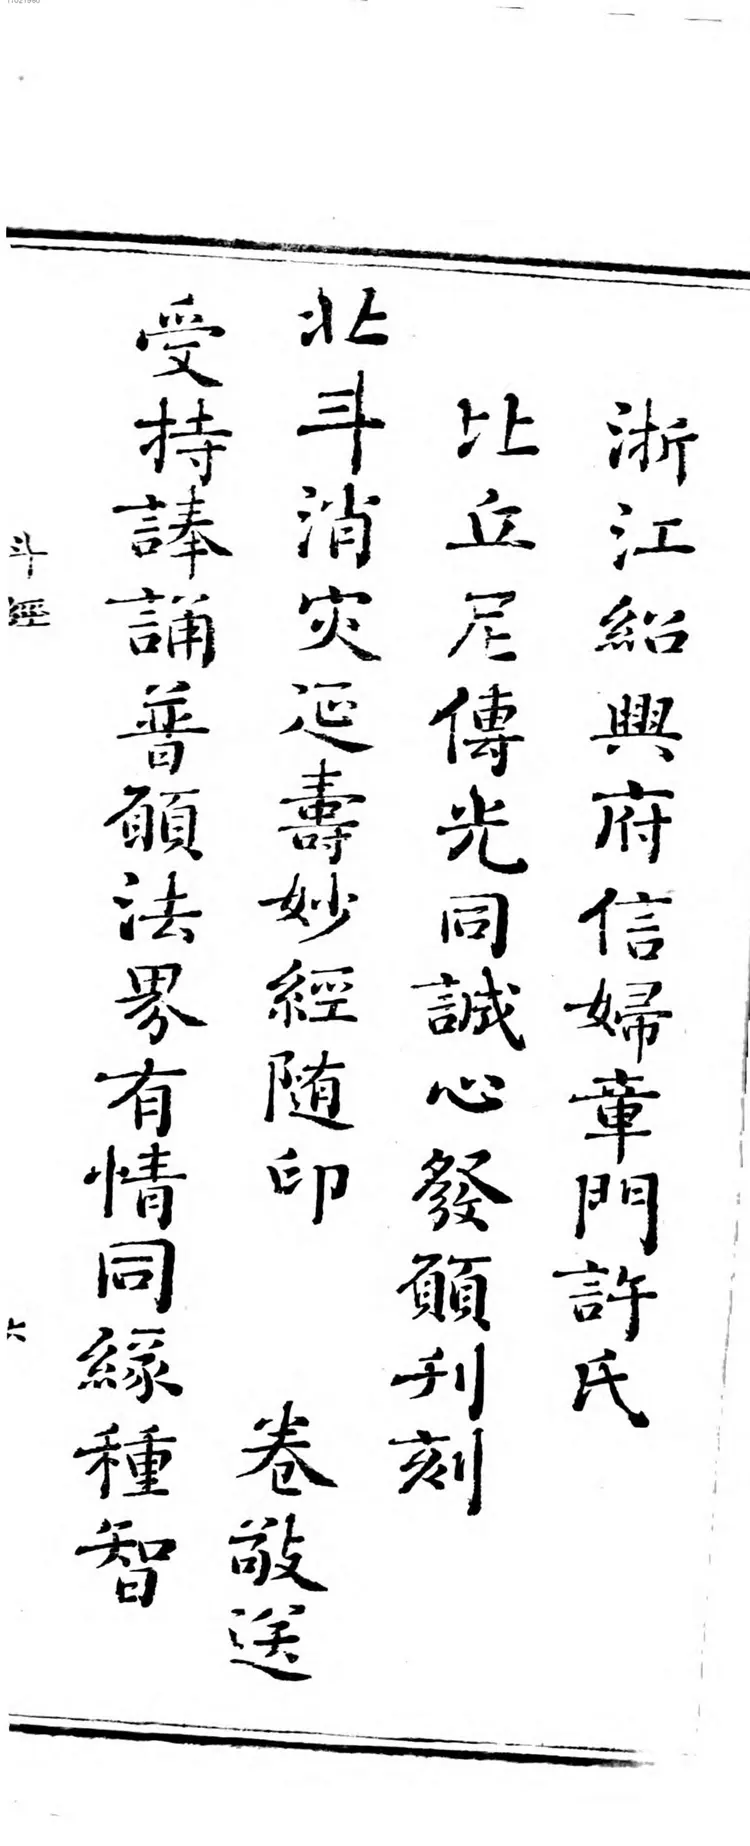 浙江紹興府信婦章門許氏
比丘尼傳光同誠心發願刊刻
北斗消灾延壽妙經隨印　卷敬送
受持諱誦普願法界有情同緣種智
斗經
六